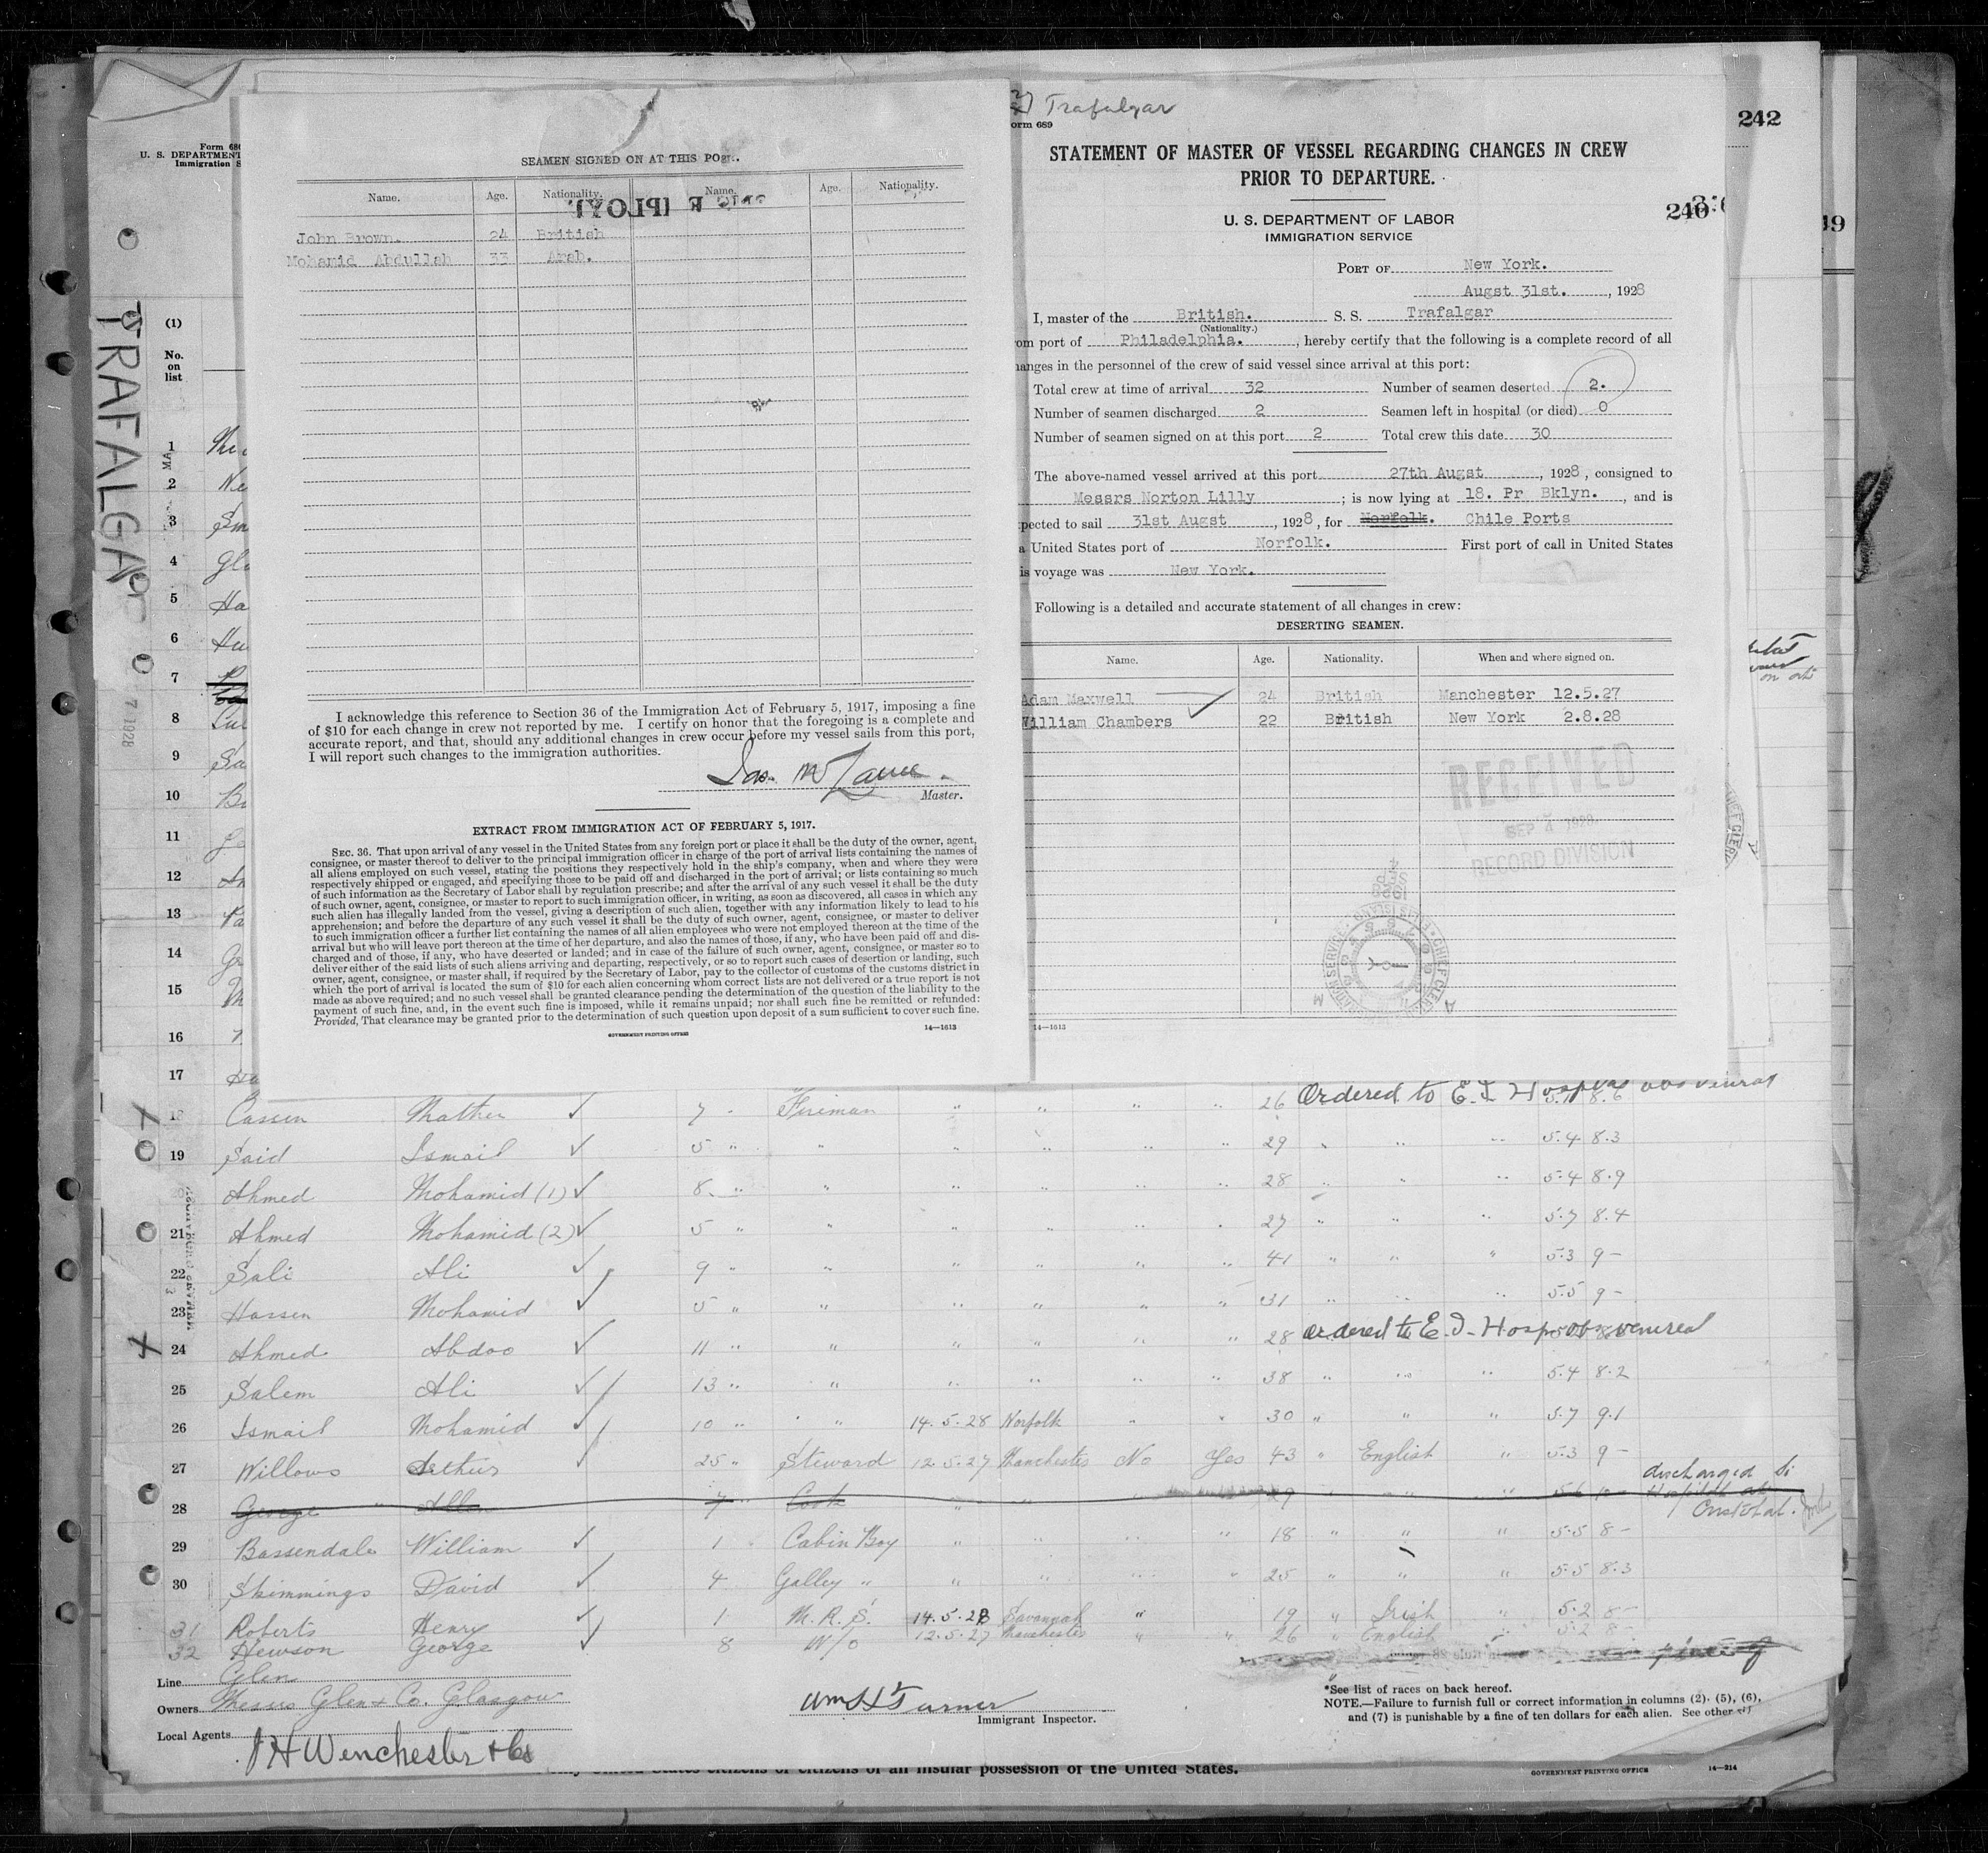 Trafalgar
242
Form 689
STATEMENT OF MASTER OF VESSEL REGARDING CHANGES IN CREW
PRIOR TO DEPARTURE.
U. S. DEPARTMENT OF LABOR
IMMIGRATION SERVICE
240
PORT OF New York.
Augst 31st. , 1928
I, master of the British. S. S. Trafalgar
(Nationality.)
om port of Philadelphia. , hereby certify that the following is a complete record of all
hanges in the personnel of the crew of said vessel since arrival at this port:
Total crew at time of arrival 32 Number of seamen deserted 2.
Number of seamen discharged 2 Seamen left in hospital (or died) 0
Number of seamen signed on at this port 2 Total crew this date 30
The above-named vessel arrived at this port 27th Augst , 1928, consigned to
Messrs Norton Lilly ; is now lying at 18. Pr Bklyn. , and is
pected to sail 31st Augst , 1928, for Norfolk. Chile Ports
a United States port of Norfolk. First port of call in United States
is voyage was New York.
Following is a detailed and accurate statement of all changes in crew:
DESERTING SEAMEN.
Name. Age. Nationality. When and where signed on.
Adam Maxwell 24 British Manchester 12.5.27
William Chambers 22 British New York 2.8.28
RECEIVED
SEP 4 1928
RECORD DIVISION
14—1613
SEAMEN SIGNED ON AT THIS PORT.
Name. Age. Nationality. Name. Age. Nationality.
John Brown. 24 British
Mohamid Abdullah 33 Arab.
I acknowledge this reference to Section 36 of the Immigration Act of February 5, 1917, imposing a fine
of $10 for each change in crew not reported by me. I certify on honor that the foregoing is a complete and
accurate report, and that, should any additional changes in crew occur before my vessel sails from this port,
I will report such changes to the immigration authorities.
Master.
EXTRACT FROM IMMIGRATION ACT OF FEBRUARY 5, 1917.
SEC. 36. That upon arrival of any vessel in the United States from any foreign port or place it shall be the duty of the owner, agent,
consignee, or master thereof to deliver to the principal immigration officer in charge of the port of arrival lists containing the names of
all aliens employed on such vessel, stating the positions they respectively hold in the ship's company, when and where they were
respectively shipped or engaged, and specifying those to be paid off and discharged in the port of arrival; or lists containing so much
of such information as the Secretary of Labor shall by regulation prescribe; and after the arrival of any such vessel it shall be the duty
of such owner, agent, consignee, or master to report to such immigration officer, in writing, as soon as discovered, all cases in which any
such alien has illegally landed from the vessel, giving a description of such alien, together with any information likely to lead to his
apprehension; and before the departure of any such vessel it shall be the duty of such owner, agent, consignee, or master to deliver
to such immigration officer a further list containing the names of all alien employees who were not employed thereon at the time of the
arrival but who will leave port thereon at the time of her departure, and also the names of those, if any, who have been paid off and dis-
charged and of those, if any, who have deserted or landed; and in case of the failure of such owner, agent, consignee, or master so to
deliver either of the said lists of such aliens arriving and departing, respectively, or so to report such cases of desertion or landing, such
owner, agent, consignee, or master shall, if required by the Secretary of Labor, pay to the collector of customs of the customs district in
which the port of arrival is located the sum of $10 for each alien concerning whom correct lists are not delivered or a true report is not
made as above required; and no such vessel shall be granted clearance pending the determination of the question of the liability to the
payment of such fine, and, in the event such fine is imposed, while it remains unpaid; nor shall such fine be remitted or refunded:
Provided, That clearance may be granted prior to the determination of such question upon deposit of a sum sufficient to cover such fine.
GOVERNMENT PRINTING OFFICE 14—1613
Form 68
U. S. DEPARTMENT
Immigration S
TRAFALGAR
(1)
No.
on
list
1
2 Ne
3 Sm
4 Gl
5 Ha
6 Hu
7
8 Cur
9 Sa
10 B
11
12
13 Pa
14
15
16
17
18 Cassen Mather 7 Fireman " " " " 26 Ordered to E I Hospital 8.6
19 Said Ismail 5 " " " " " " 29 " " " 5.4 8.3
20 Ahmed Mohamid (1) 8 " " " " " " 28 " " " 5.4 8.9
21 Ahmed Mohamid (2) 5 " " " " " " 27 " " " 5.7 8.4
22 Sali Ali 9 " " " " " " 41 " " " 5.3 9 -
23 Hassen Mohamid 5 " " " " " " 31 " " " 5.5 9 -
24 Ahmed Abdoo 11 " " " " " 28 ordered to E. I. Hosp. obs venereal
25 Salem Ali 13 " " " " " " 38 " " " 5.4 8.2
26 Ismail Mohamid 10 " " 14.5.28 Norfolk " " 30 " " " 5.7 9.1
27 Willows Arthur 25 " Steward 12.5.27 Manchester No Yes 43 " English " 5.3 9 -
28 George Allen 7 " Cook " " 29 " " " 5.6 discharged to Hospital at
29 Bassendale William 1 " Cabin Boy " " " " 18 " " " 5.5 8 -
30 Skimmings David 4 Galley " " " " " 25 " " " 5.5 8.3
31 Roberts Henry 1 M. R. S. 14.5.28 Savannah " 19 " Irish " 5.2 8 -
32 Hewson George 8 W/o 12.5.27 Manchester " " 26 " English " 5.2 8 -
Line Glen
Owners Messrs Glen & Co. Glasgow
Local Agents J H Winchester & Co
Wm H Turner
Immigrant Inspector.
*See list of races on back hereof.
NOTE.—Failure to furnish full or correct information in columns (2), (5), (6),
and (7) is punishable by a fine of ten dollars for each alien. See other
United States citizens or citizens of an insular possession of the United States.
GOVERNMENT PRINTING OFFICE 14—314